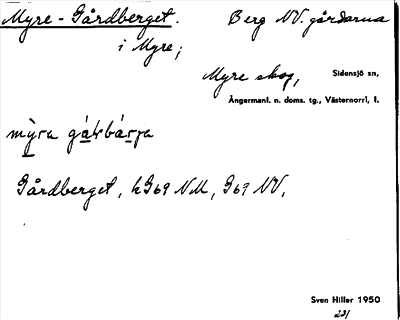 Myre-Gårdberget. Berg NV. gårdarna
i Myre;
Myre skog, Sidensjö sn,
Ångermanl. n. doms. tg., Västernorrl. l.
mỳra gáḷsbárja
Gårdberget, h G69 NM, G69 NV.
Sven Hiller 1950
221